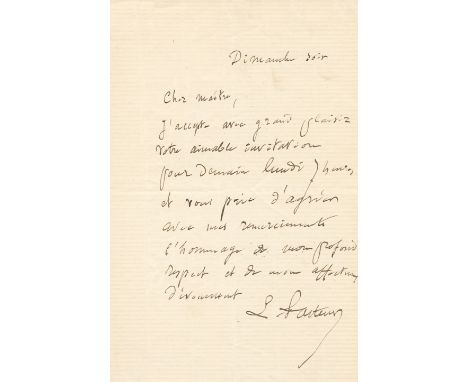 Dimanche soir
Cher maître,
J'accepte avec grand plaisir
votre aimable invitation
pour Demain lundi 7 heures
et vous prie d'agréer
avec mes remerciements
l'hommage de mon profond
respect et de mon affectueux
dévouement
L. Pasteur